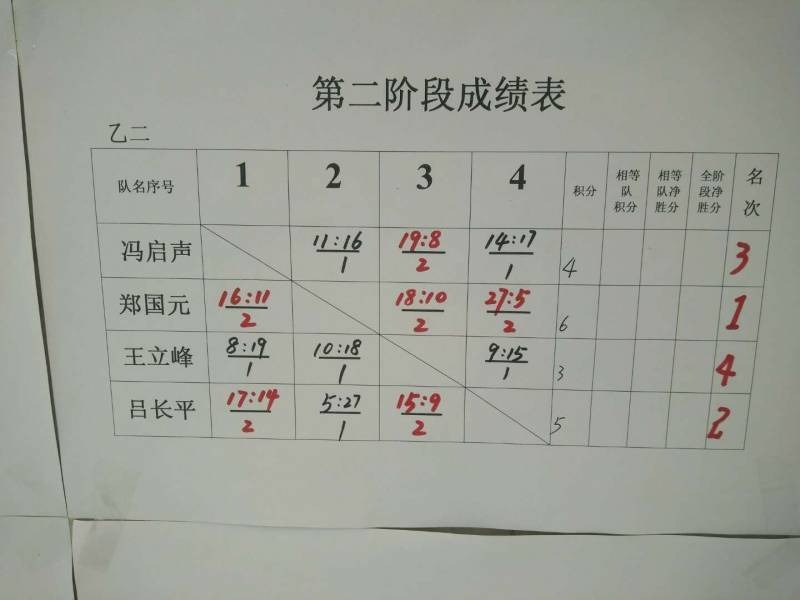 第二阶段成绩表
乙二
队名序号 1 2 3 4 积分 相等队积分 相等队净胜分 全阶段净胜分 名次
冯启声 11:16 1 19:8 2 14:17 1 4 3
郑国元 16:11 2 18:10 2 27:5 2 6 1
王立峰 8:19 1 10:18 1 9:15 1 3 4
吕长平 17:14 2 5:27 1 15:9 2 5 2